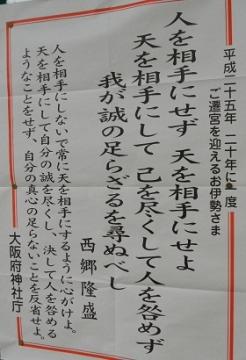 平成二十五年 二十年に一度
ご遷宮を迎えるお伊勢さま
人を相手にせず 天を相手にせよ
天を相手にして 己を尽くして人を咎めず
我が誠の足らざるを尋ぬべし
西郷隆盛
人を相手にしないで常に天を相手にするように心がけよ。
天を相手にして自分の誠を尽くし、決して人を咎める
ようなことをせず、自分の真心の足らないことを反省せよ。
大阪府神社庁